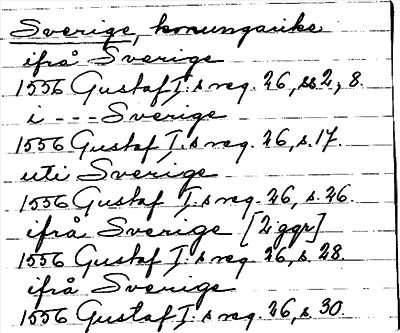 Sverige, konungarike
ifrå Sverige
1556 Gustaf I:s reg. 26, ss 2, 8.
i - - - Sverige
1556 Gustaf I:s reg. 26, s. 17.
uti Sverige
1556 Gustaf I:s reg. 26, s. 26.
ifrå Sverige [2 ggr]
1556 Gustaf I:s reg. 26, s. 28.
ifrå Sverige
1556 Gustaf I:s reg. 26, s. 30.